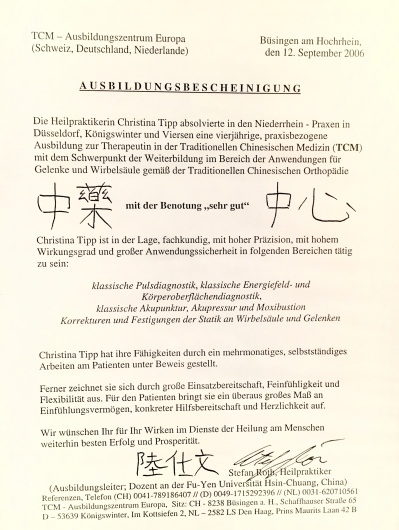 TCM – Ausbildungszentrum Europa
(Schweiz, Deutschland, Niederlande)
Büsingen am Hochrhein,
den 12. September 2006
AUSBILDUNGSBESCHEINIGUNG
Die Heilpraktikerin Christina Tipp absolvierte in den Niederrhein - Praxen in
Düsseldorf, Königswinter und Viersen eine vierjährige, praxisbezogene
Ausbildung zur Therapeutin in der Traditionellen Chinesischen Medizin (TCM)
mit dem Schwerpunkt der Weiterbildung im Bereich der Anwendungen für
Gelenke und Wirbelsäule gemäß der Traditionellen Chinesischen Orthopädie
中藥 mit der Benotung „sehr gut" 中心
Christina Tipp ist in der Lage, fachkundig, mit hoher Präzision, mit hohem
Wirkungsgrad und großer Anwendungssicherheit in folgenden Bereichen tätig
zu sein:
klassische Pulsdiagnostik, klassische Energiefeld- und
Körperoberflächendiagnostik,
klassische Akupunktur, Akupressur und Moxibustion
Korrekturen und Festigungen der Statik an Wirbelsäule und Gelenken
Christina Tipp hat ihre Fähigkeiten durch ein mehrmonatiges, selbstständiges
Arbeiten am Patienten unter Beweis gestellt.
Ferner zeichnet sie sich durch große Einsatzbereitschaft, Feinfühligkeit und
Flexibilität aus. Für den Patienten bringt sie ein überaus großes Maß an
Einfühlungsvermögen, konkreter Hilfsbereitschaft und Herzlichkeit auf.
Wir wünschen Ihr für Ihr Wirken im Dienste der Heilung am Menschen
weiterhin besten Erfolg und Prosperität.
陸仕文
Stefan Roth, Heilpraktiker
(Ausbildungsleiter; Dozent an der Fu-Yen Universität Hsin-Chuang, China)
Referenzen, Telefon (CH) 0041-789186407 // (D) 0049-1715292396 // (NL) 0031-620710561
TCM - Ausbildungszentrum Europa, Sitz: CH - 8238 Büsingen a. H., Schaffhauser Straße 65
D – 53639 Königswinter, Im Kottsiefen 2, NL – 2582 LS Den Haag, Prins Maurits Laan 42 B